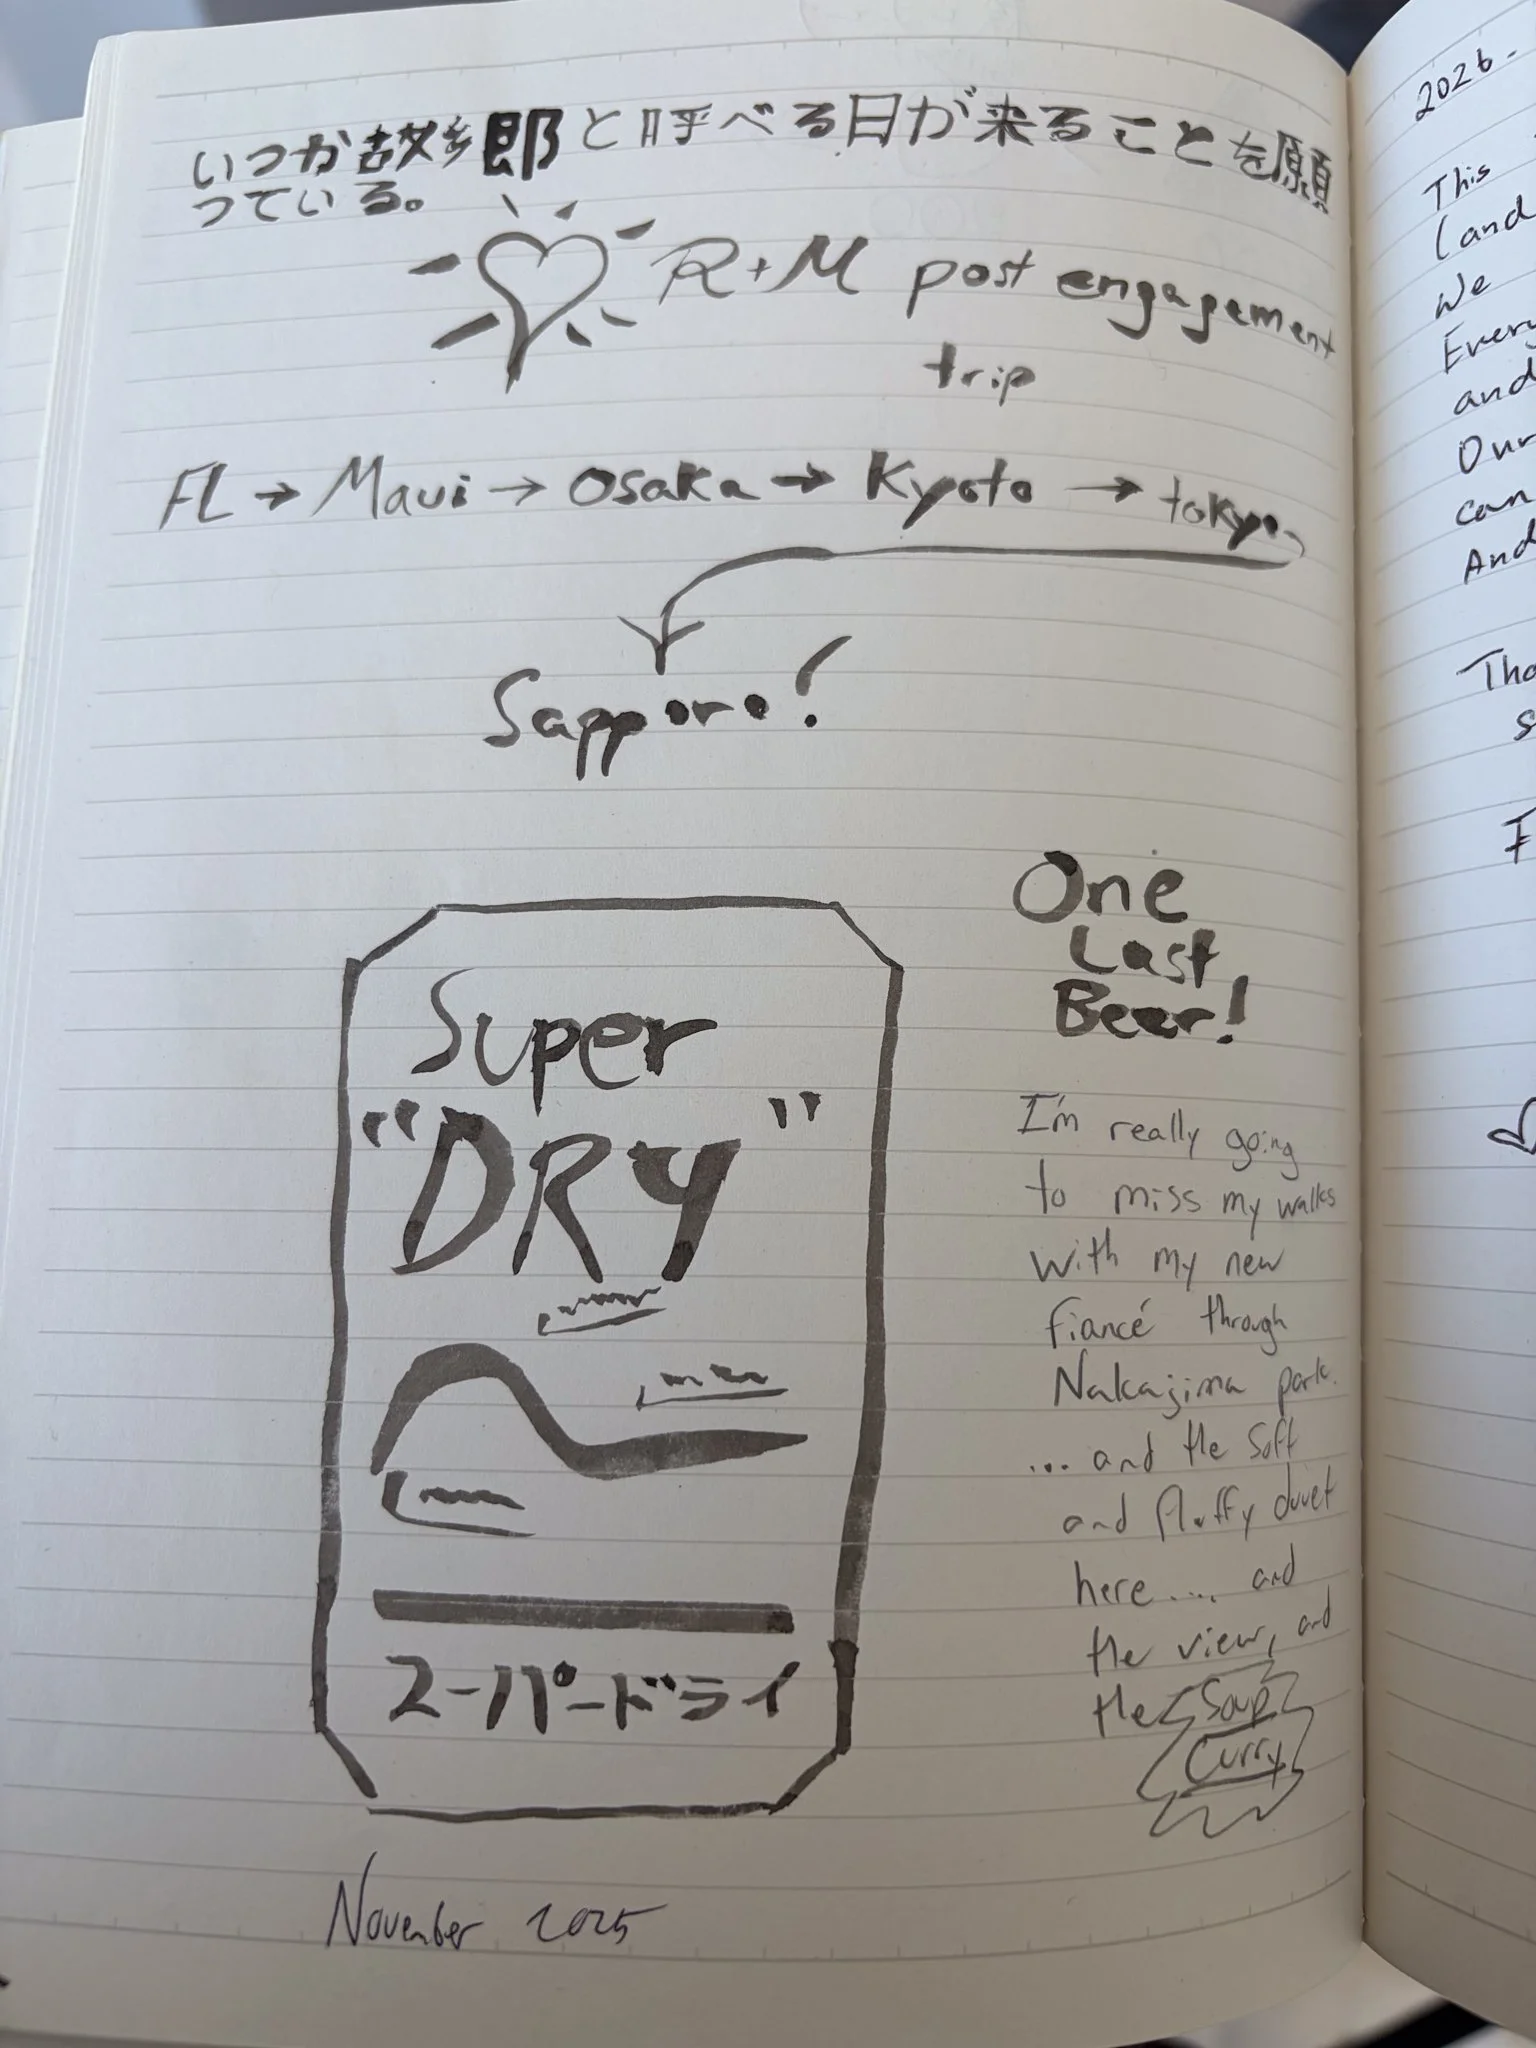 いつか故郷と呼べる日が来ることを願
っている。
R+M post engagement
trip
FL → Maui → Osaka → Kyoto → tokyo
Sapporo!
One
Last
Beer!
Super
"DRY"
スーパードライ
I'm really going
to miss my walks
with my new
fiancé through
Nakajima park.
... and the soft
and fluffy duvet
here.... and
the view, and
the Soup
Curry
November 2025
2026.
This
(and
We
Every
and
Our
can
And